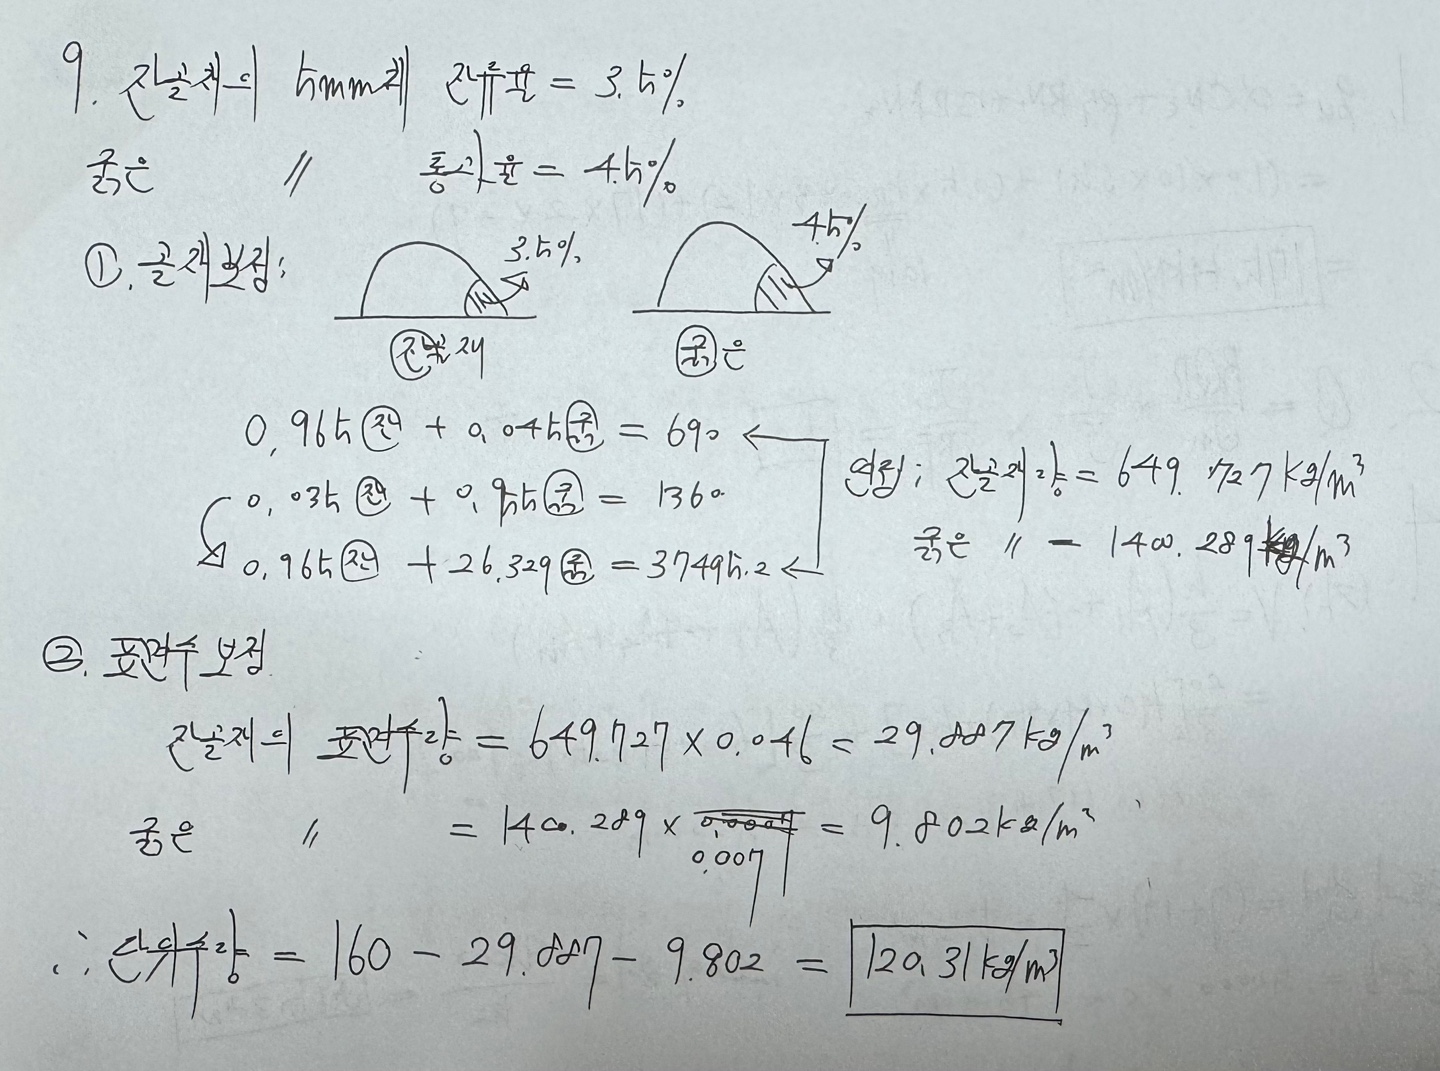 9. 잔골재의 5mm체 잔류율 = 3.5%
굵은 〃 통과율 = 4.5%
①. 골재보정;
3.5%
4.5%
잔골재
굵은
0.965잔 + 0.045굵 = 690
0.035잔 + 0.955굵 = 1360
0.965잔 + 26.329굵 = 37495.2
연립; 잔골재량 = 649.727kg/m³
굵은 〃 = 1400.289kg/m³
②. 표면수보정
잔골재의 표면수량 = 649.727 × 0.046 = 29.887kg/m³
굵은 〃 = 1400.289 × 0.007 = 9.802kg/m³
∴ 단위수량 = 160 - 29.887 - 9.802 = 120.31kg/m³